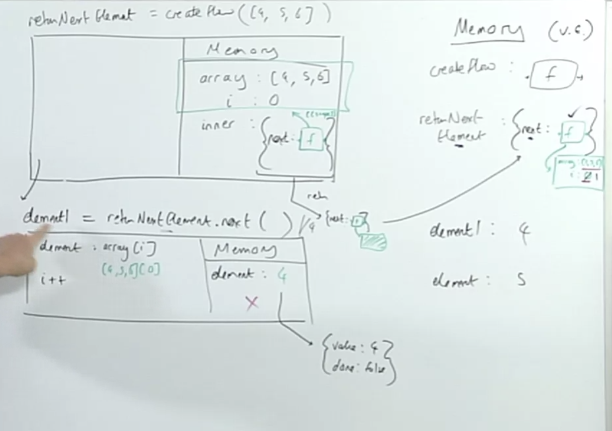 returnNextElement = createFlow([4, 5, 6])
Memory
array : [4, 5, 6]
i : 0
inner : {next: f}
retn
{next: }
element1 = returnNextElement.next ( )
element : array[i]
[4,5,6][0]
i++
Memory
element : 4
X
{value : 4
done : false}
Memory (v.s.)
createFlow : f
returnNext
Element : {next: f}
i : 2 1
element1 : 4
element : 5